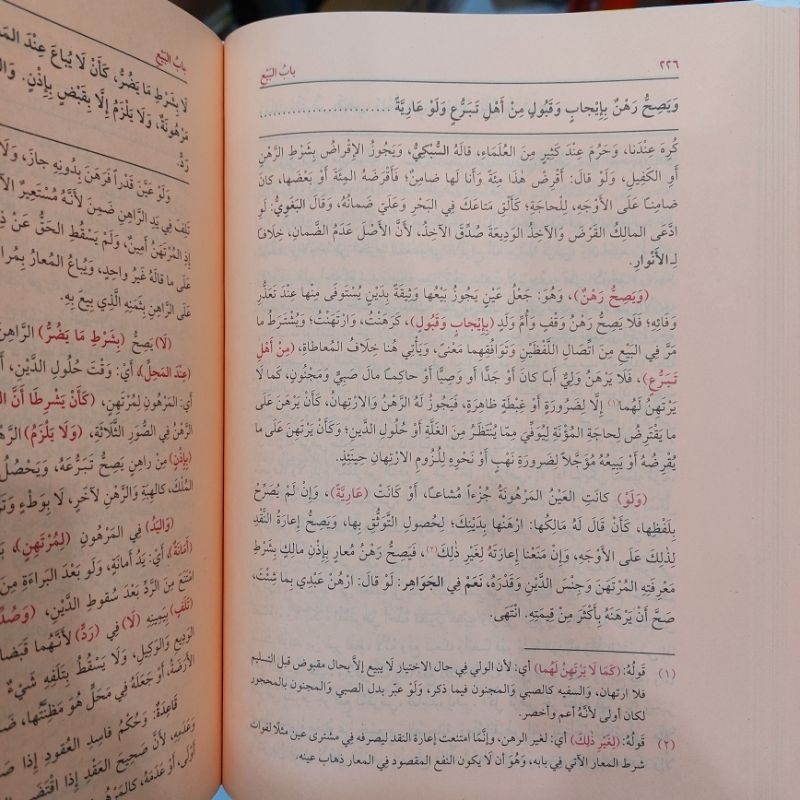 ٢٢٦
بابُ البَيْعِ
وَيَصِحُّ رَهْنٌ بِإِيْجابٍ وَقَبُولٍ مِنْ أَهْلِ تَبَرُّعٍ وَلَوْ عَارِيَّةً ........................
كُرِهَ عِنْدَنا، وَحَرُمَ عِنْدَ كَثِيرٍ مِنَ العُلَمَاءِ، قالَهُ السُّبْكِيُّ، وَيَجُوزُ الإِقْراضُ بِشَرْطِ الرَّهْنِ
أَوِ الكَفِيلِ، وَلَوْ قالَ: أَقْرِضْ هٰذا مِئَةً وَأَنا لَها ضامِنٌ؛ فَأَقْرَضَهُ المِئَةَ أَوْ بَعْضَها، كانَ
ضامِناً عَلَى الأَوْجَهِ، لِلْحاجَةِ؛ كَأَلْقِ مَتاعَكَ فِي البَحْرِ وَعَلَيَّ ضَمانُهُ، وَقالَ البَغَوِيُّ: لَوِ
ادَّعَى المالِكُ القَرْضَ وَالآخِذُ الوَدِيعَةَ صُدِّقَ الآخِذُ، لأَنَّ الأَصْلَ عَدَمُ الضَّمانِ، خِلافاً
لِـالأَنْوارِ.
(وَيَصِحُّ رَهْنٌ)، وَهُوَ: جَعْلُ عَيْنٍ يَجُوزُ بَيْعُها وَثِيقَةً بِدَيْنٍ يُسْتَوفَى مِنْها عِنْدَ تَعَذُّرِ
وَفَائِهِ؛ فَلا يَصِحُّ رَهْنُ وَقْفٍ وَأُمِّ وَلَدٍ (بِإِيْجابٍ وَقَبُولٍ)، كَرَهَنْتُ، وَارْتَهَنْتُ؛ وَيُشْتَرَطُ ما
مَرَّ فِي البَيْعِ مِنَ اتِّصَالِ اللَّفْظَيْنِ وَتَوَافُقِهِما مَعْنىً، وَيَأْتِي هُنا خِلَافُ المُعاطاةِ، (مِنْ أَهْلِ
تَبَرُّعٍ)، فَلا يَرْهَنُ وَلِيٌّ أَباً كانَ أَوْ جَدًّا أَو وَصِيًّا أَوْ حاكِماً مالَ صَبِيٍّ وَمَجْنُونٍ، كَما لَا
يَرْتَهِنُ لَهُما(١) إِلَّا لِضَرُورَةٍ أَوْ غِبْطَةٍ ظاهِرَةٍ، فَيَجُوزُ لَهُ الرَّهْنُ وَالارْتِهانُ، كَأَنْ يَرْهَنَ عَلَى
ما يَقْتَرِضُ لِحاجَةِ المُؤْنَةِ لِيُوَفِّيَ مِمَّا يُنْتَظَرُ مِنَ الغَلَّةِ أَوْ حُلُولِ الدَّيْنِ؛ وَكَأَنْ يَرْتَهِنَ عَلَى ما
يُقْرِضُهُ أَوْ يَبِيعُهُ مُؤَجَّلاً لِضَرُورَةِ نَهْبٍ أَوْ نَحْوِهِ لِلُزُومِ الارْتِهانِ حِينَئِذٍ.
(وَلَوْ) كانَتِ العَيْنُ المَرْهُونَةُ جُزْءاً مُشاعاً، أَوْ كَانَتْ (عَارِيَّةً)، وَإِنْ لَمْ يُصَرِّحْ
بِلَفْظِها، كَأَنْ قَالَ لَهُ مَالِكُها: ارْهَنْها بِدَيْنِكَ؛ لِحُصولِ التَّوَثُّقِ بِها، وَيَصِحُّ إِعَارَةُ النَّقْدِ
لِذٰلِكَ عَلَى الأَوْجَهِ، وَإِنْ مَنَعْنا إِعارَتَهُ لِغَيْرِ ذٰلِكَ(٢)، فَيَصِحُّ رَهْنُ مُعارٍ بِإِذْنِ مالِكٍ بِشَرْطِ
مَعْرِفَتِهِ المُرْتَهَنَ وَجِنْسَ الدَّيْنِ وَقَدْرَهُ، نَعَمْ فِي الجَوَاهِرِ: لَوْ قالَ: ارْهَنْ عَبْدِي بِما شِئْتَ،
صَحَّ أَنْ يَرْهَنَهُ بِأَكْثَرَ مِنْ قِيمَتِهِ. انْتَهَى.
(١) قَولُهُ: (كَمَا لَا يَرْتَهِنُ لَهُما) أي: لأن الولي في حال الاختيار لا يبيع إلَّا بحال مقبوض قبل التسليم
فلا ارتهان، والسفيه كالصبي والمجنون فيما ذكر، ولَوْ عبّر بدل الصبي والمجنون بالمحجور
لكان أولى لأنَّهُ أعم وأخصر.
(٢) قَولُهُ: (لِغَيْرِ ذٰلِكَ) أي: لغير الرهن، وإنَّما امتنعت إعارة النقد ليصرفه في مشترى عين مثلًا لفوات
شرط المعار الآتي في بابه، وَهُوَ أن لَا يكون النفع المقصود في المعار ذهاب عينه.
بابُ البَيْعِ
لَا بِشَرْطِ مَا يَضُرُّ، كَأَنْ لَا يُبَاعَ عِنْدَ
مَرْهُونَةٌ، وَلَا يَلْزَمُ إِلَّا بِقَبْضٍ بِإِذْنٍ.
رَدٍّ.
وَلَوْ عَيَّنَ قَدْراً فَرَهَنَ بِدُونِهِ جازَ،
تَلِفَ فِي يَدِ الرَّاهِنِ ضَمِنَ لأَنَّهُ مُسْتَعِيرٌ
إِذِ المُرْتَهِنُ أَمِينٌ، وَلَمْ يَسْقُطِ الحَقُّ عَنْ
عَلَى ما قالَهُ غَيْرُ واحِدٍ، وَيُباعُ المُعارُ
عَلَى الرَّاهِنِ بِثَمَنِهِ الَّذِي بِيعَ بِهِ.
(لَا) يَصِحُّ (بِشَرْطِ مَا يَضُرُّ) الرَّاهِنَ
(عِنْدَ المَحِلِّ) أَيْ: وَقْتَ حُلُولِ الدَّيْنِ،
أَيِ: المَرْهُونُ لِمُرْتَهِنٍ، (كَأَنْ يَشْرِطَا
الرَّهْنُ فِي الصُّوَرِ الثَّلاثَةِ، (وَلَا يَلْزَمُ)
(بِإِذْنٍ) مِنْ راهِنٍ يَصِحُّ تَبَرُّعُهُ، وَيَحْصُلُ
المُلْكَ، كالهِبَةِ وَالرَّهْنِ لآخَرَ، لَا بِوَطْءٍ
(وَاليَدُ) فِي المَرْهُونِ (لِمُرْتَهِنٍ)،
(أَمَانَةٌ) أَيْ: يَدُ أَمَانَةٍ، وَلَو بَعْدَ البَرَاءَةِ
امْتَنَعَ مِنَ الرَّدِّ بَعْدَ سُقوطِ الدَّيْنِ،
(تَلَفٍ) بِيَمِينِهِ (لَا) فِي (رَدٍّ) لأَنَّهُما
الوَدِيعِ وَالوَكِيلِ، وَلَا يَسْقُطُ بِتَلَفِهِ شَيْءٌ
الأَرَضَةُ، أَوْ جَعَلَهُ فِي مَحَلٍّ هُوَ مَظِنَّتُها،
قاعِدَةٌ: وَحُكْمُ فاسِدِ العُقودِ إِذا
وَعَدَمِهِ، لأَنَّ صَحِيحَ العَقْدِ إِذا
أَوْلَى، أَوْ عَدَمَهُ،